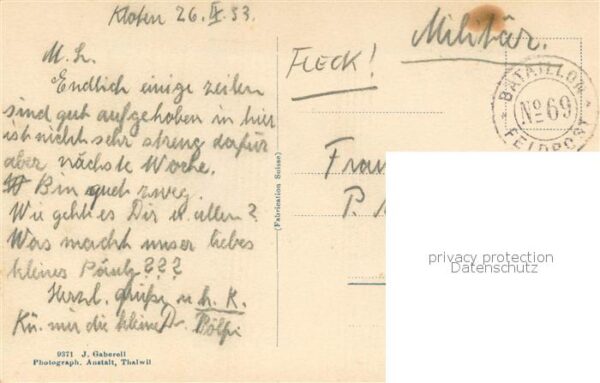 Kloten 26. IX. 33.
M. L.
Endlich einige zeilen
sind gut aufgehoben in hier
ist nicht sehr streng dafür
aber nächste Woche.
Bin auch zweg.
Wie geht es Dir u. allen?
Was macht unser liebes
kleines ???
Herzl. grüße u. h. K.
Kü. mir die kleine
9371 J. Gaberell
Photograph. Anstalt, Thalwil
(Fabrication Suisse)
FLECK!
Militär.
BATAILLON
No 69
FELDPOST
Frau
P.
privacy protection
Datenschutz